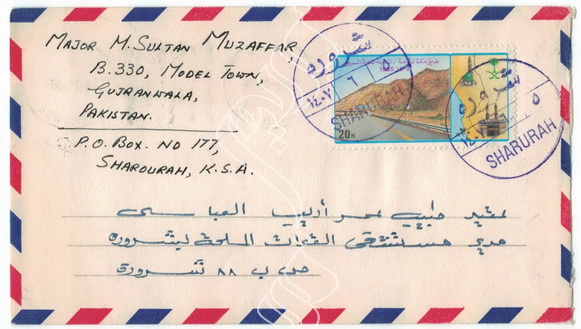 MAJOR M. SULTAN MUZAFFAR,
B.330, MODEL TOWN,
GUJRANWALA,
PAKISTAN.
P.O. BOX. NO 177,
SHAROURAH, K.S.A.
شرورة
٥ ٦ ١٤٠٧
SHARURAH
20H
شرورة
٥
SHARURAH
طبيب
العباسي
مدير مستشفى القوات المسلحة بشرورة
ص ب ٨٨ شرورة